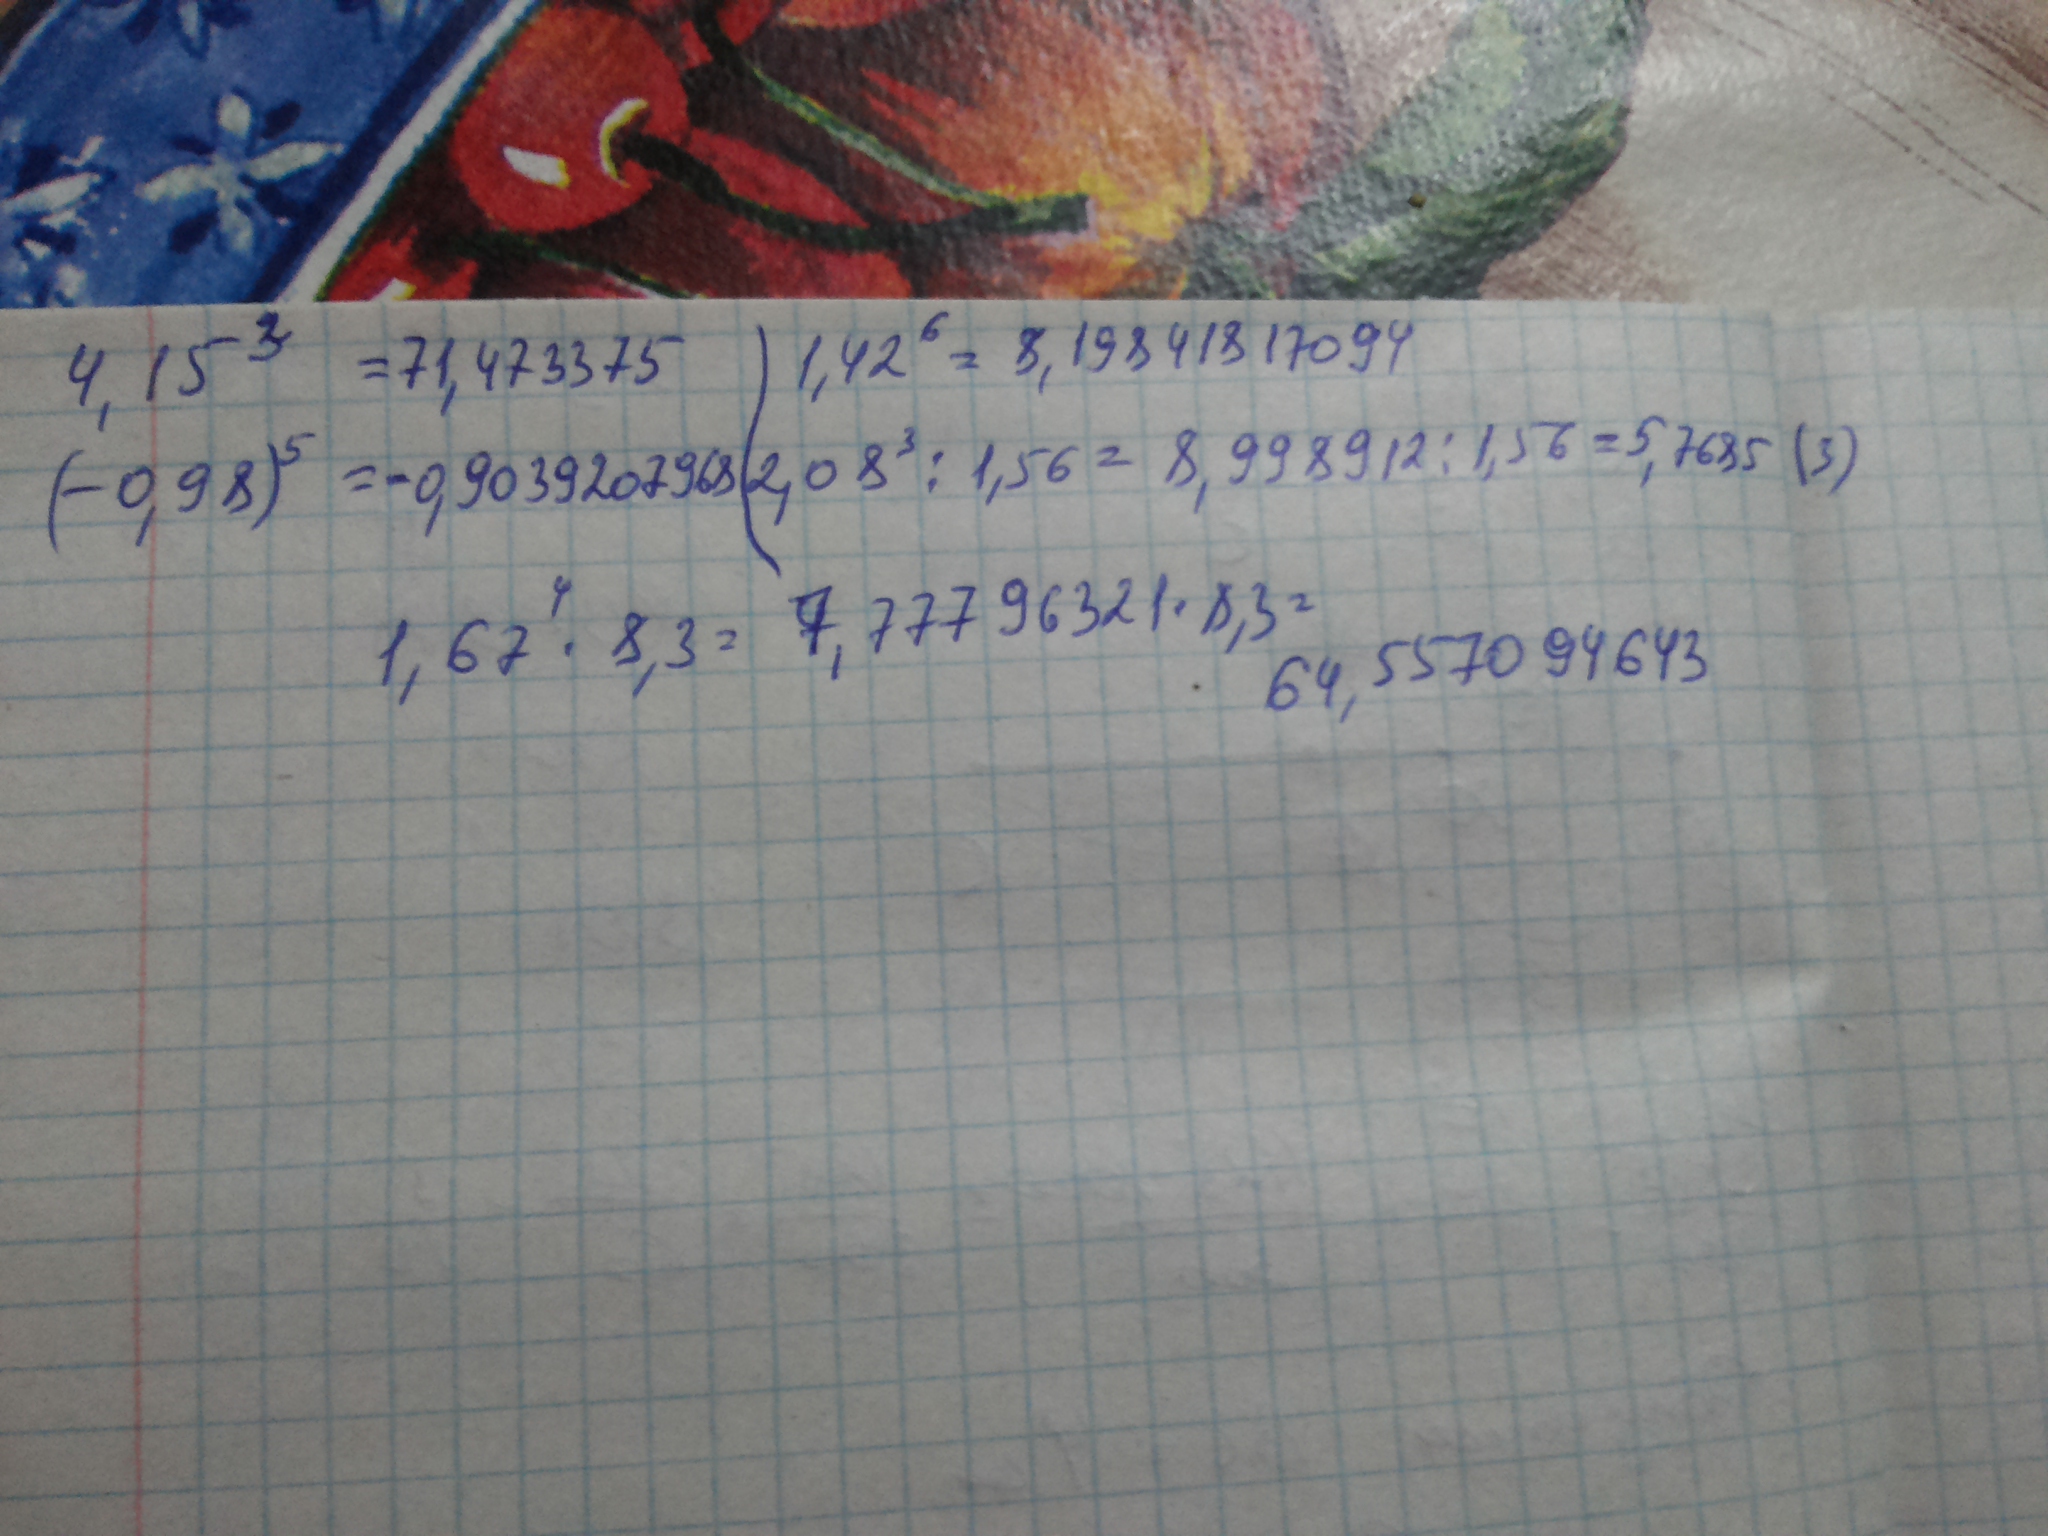 4,15³ =71,473375
(-0,98)⁵ =-0,9039207968
1,42⁶ = 8,19841817094
2,08³ : 1,56 = 8,998912 : 1,56 = 5,7685 (3)
1,67⁴ · 8,3 = 7,77796321 · 8,3 =
64,557094643